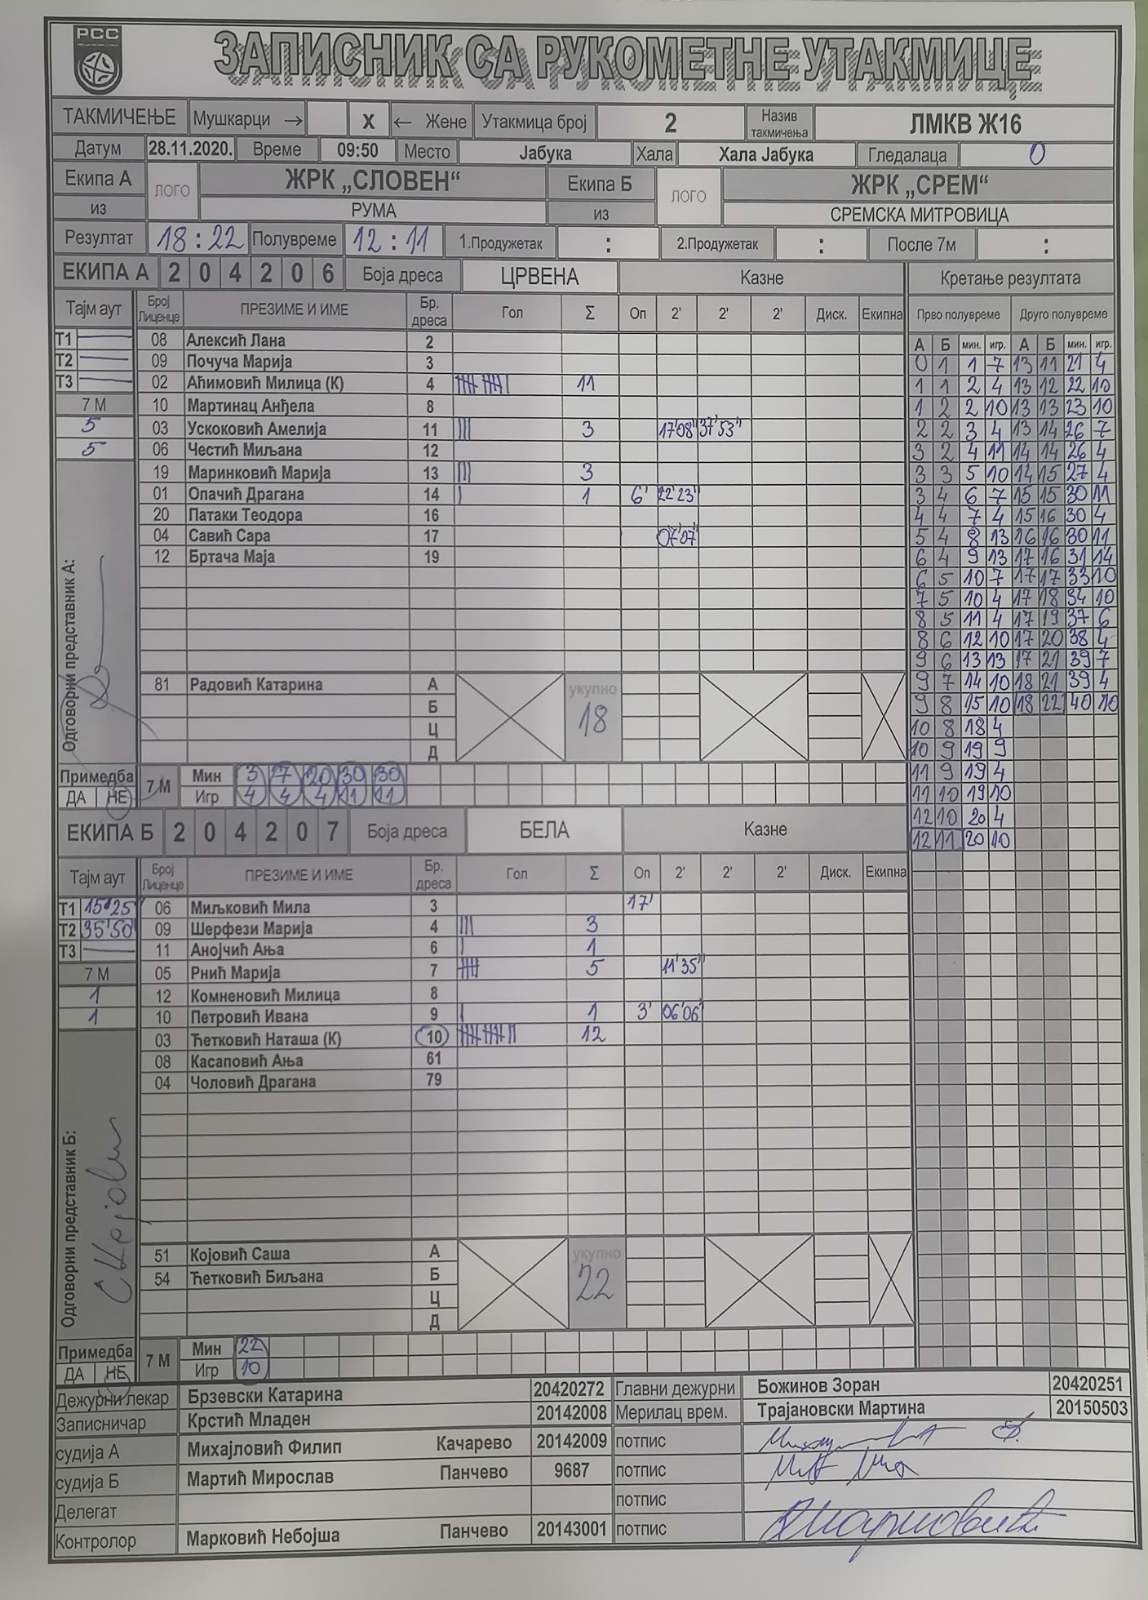 РСС
ЗАПИСНИК СА РУКОМЕТНЕ УТАКМИЦЕ
ТАКМИЧЕЊЕ Мушкарци → X ← Жене Утакмица број 2 Назив такмичења ЛМКВ Ж16
Датум 28.11.2020. Време 09:50 Место Јабука Хала Хала Јабука Гледалаца 0
Екипа А ЛОГО ЖРК „СЛОВЕН“ Екипа Б ЛОГО ЖРК „СРЕМ“
из РУМА из СРЕМСКА МИТРОВИЦА
Резултат 18:22 Полувреме 12:11 1.Продужетак : 2.Продужетак : После 7м :
ЕКИПА А 2 0 4 2 0 6 Боја дреса ЦРВЕНА Казне
Тајм аут Број Лиценце ПРЕЗИМЕ И ИМЕ Бр. дреса Гол Σ Оп 2' 2' 2' Диск. Екипна
Т1 08 Алексић Лана 2
Т2 09 Почуча Марија 3
Т3 02 Аћимовић Милица (К) 4 11
7 М 10 Мартинац Анђела 8
5 03 Ускоковић Амелија 11 3 17'08" 37'53"
5 06 Честић Миљана 12
19 Маринковић Марија 13 3
01 Опачић Драгана 14 1 6' 22'23"
20 Патаки Теодора 16
04 Савић Сара 17 07'07"
12 Бртача Маја 19
81 Радовић Катарина А
Б
Ц
Д
укупно
18
Одговорни представник А:
Примедба
ДА НЕ
7 М Мин 3 7 20 30 30
Игр 4 4 4 11 11
ЕКИПА Б 2 0 4 2 0 7 Боја дреса БЕЛА Казне
Тајм аут Број Лиценце ПРЕЗИМЕ И ИМЕ Бр. дреса Гол Σ Оп 2' 2' 2' Диск. Екипна
Т1 15'25 06 Миљковић Мила 3 17'
Т2 35'50 09 Шерфези Марија 4 3
Т3 11 Анојчић Ања 6 1
7 М 05 Рнић Марија 7 5 11'35"
1 12 Комненовић Милица 8
1 10 Петровић Ивана 9 1 3' 06'06"
03 Ћетковић Наташа (К) 10 12
08 Касаповић Ања 61
04 Чоловић Драгана 79
51 Којовић Саша А
54 Ћетковић Биљана Б
Ц
Д
укупно
22
Одговорни представник Б:
Примедба
ДА НЕ
7 М Мин 22
Игр 10
Кретање резултата
Прво полувреме Друго полувреме
А Б мин. игр. А Б мин. игр.
0 1 1 7 13 11 21 4
1 1 2 4 13 12 22 10
1 2 2 10 13 13 23 10
2 2 3 4 13 14 26 7
3 2 4 11 14 14 26 4
3 3 5 10 14 15 27 4
3 4 6 7 15 15 30 11
4 4 7 4 15 16 30 4
5 4 8 13 16 16 30 11
6 4 9 13 17 16 31 14
6 5 10 7 17 17 33 10
7 5 10 4 17 18 34 10
8 5 11 4 17 19 37 6
8 6 12 10 17 20 38 4
9 6 13 13 17 21 39 7
9 7 14 10 18 21 39 4
9 8 15 10 18 22 40 10
10 8 18 4
10 9 19 9
11 9 19 4
11 10 19 10
12 10 20 4
12 11 20 10
Дежурни лекар Брзевски Катарина 20420272 Главни дежурни Божинов Зоран 20420251
Записничар Крстић Младен 20142008 Мерилац врем. Трајановски Мартина 20150503
судија А Михајловић Филип Качарево 20142009 потпис
судија Б Мартић Мирослав Панчево 9687 потпис
Делегат потпис
Контролор Марковић Небојша Панчево 20143001 потпис